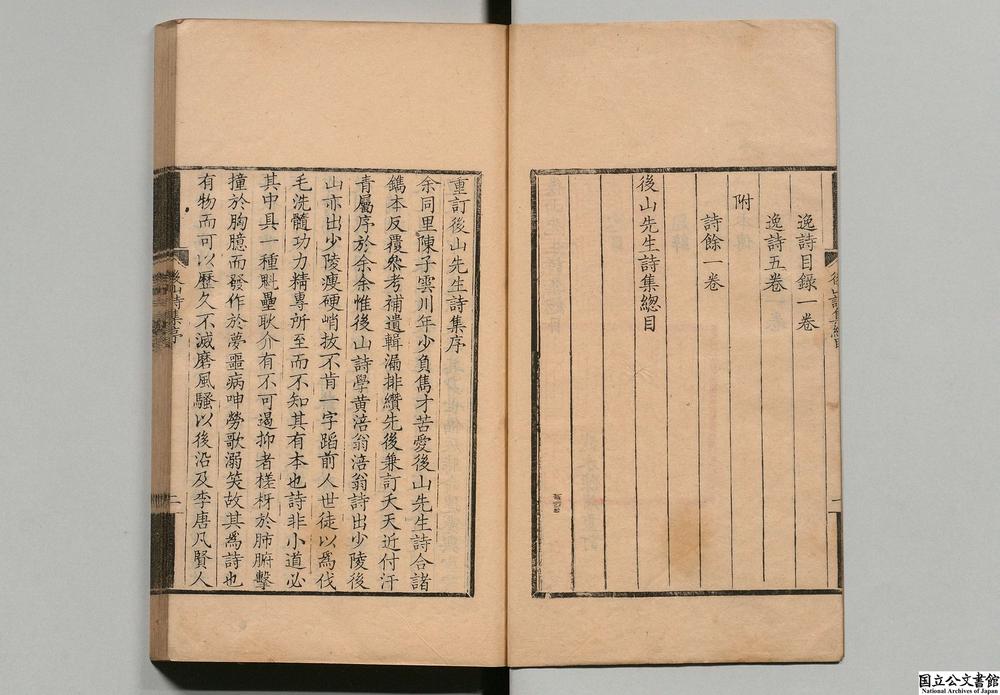 逸詩目録一卷
逸詩五卷
附
詩餘一卷
後山先生詩集總目
重訂後山先生詩集序
余同里陳子雲川年少負雋才苦愛後山先生詩合諸
鐫本反覆叅考補遺輯漏排纘先後兼訂夭夭近付汗
青屬序於余余惟後山詩學黄涪翁涪翁詩出少陵後
山亦出少陵瘦硬峭拔不肯一字蹈前人世徒以爲伐
毛洗髓功力精專所至而不知其有本也詩非小道必
其中具一種魁壘耿介有不可遏抑者槎枒於肺腑擊
撞於胸臆而發作於夢噩病呻勞歌溺笑故其爲詩也
有物而可以歷久不滅磨風騷以後沿及李唐凡賢人
後山詩集序
二
国立公文書館
National Archives of Japan